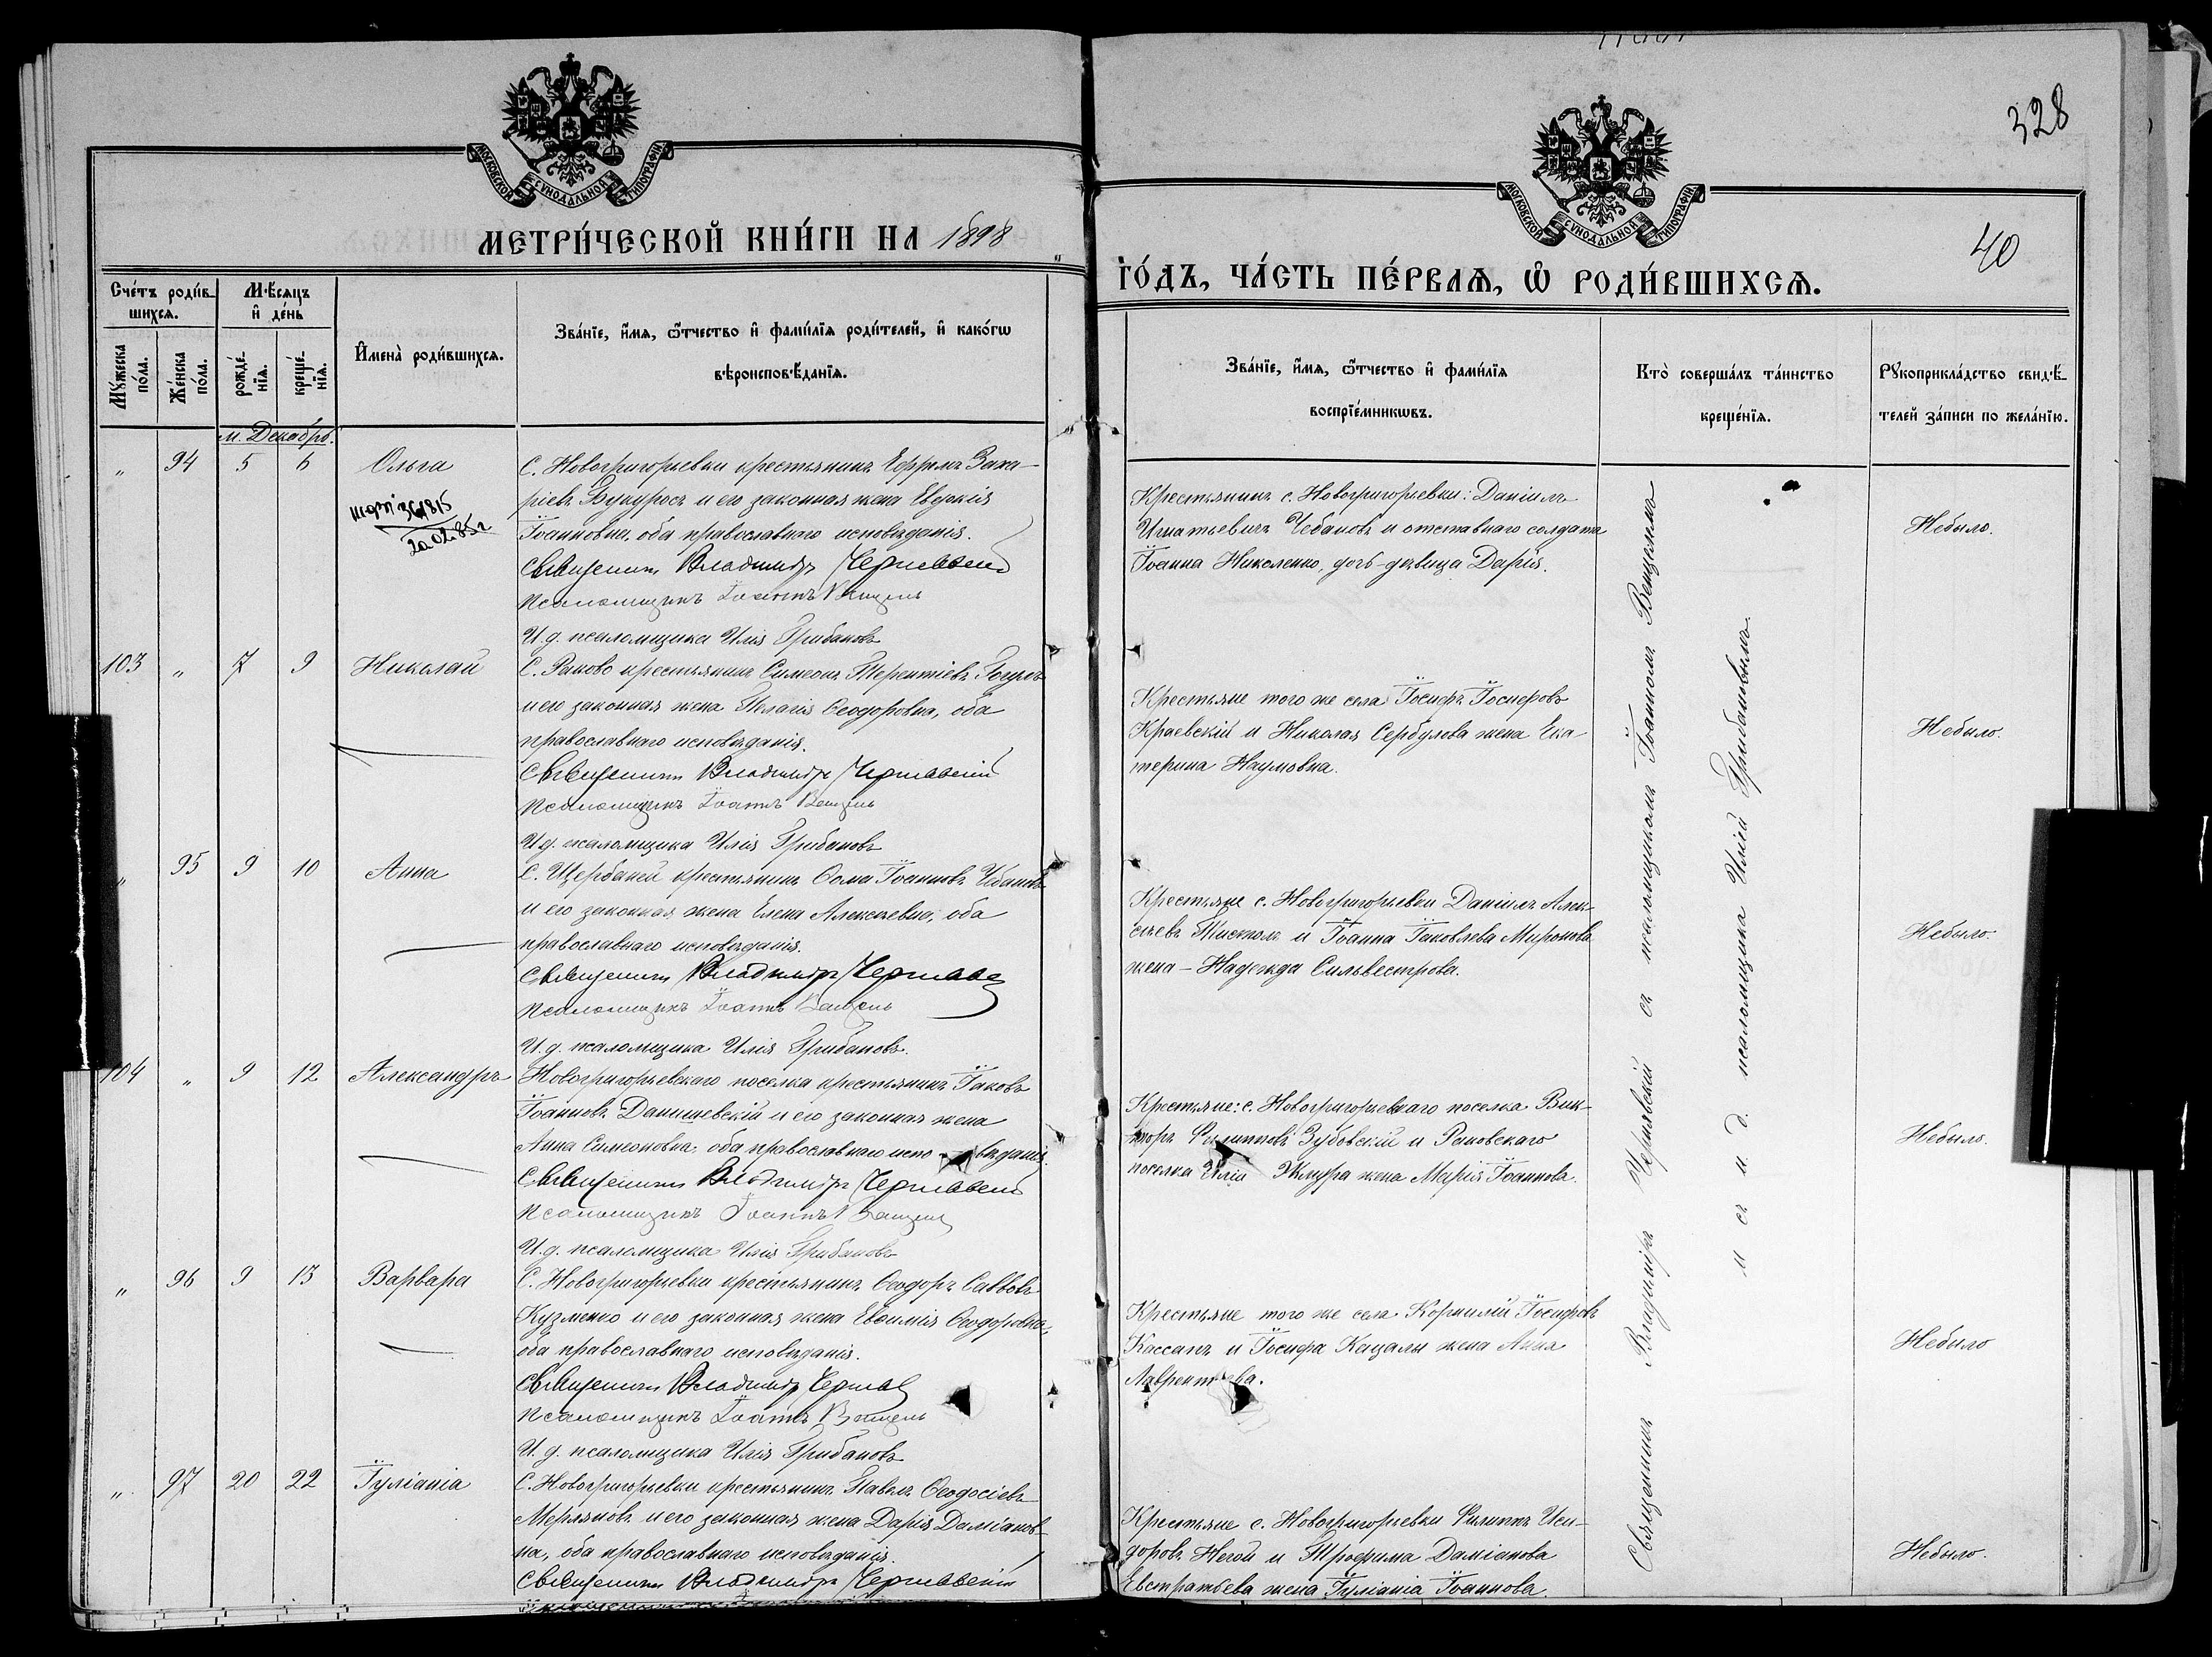 МОСКОВСКОЙ СѴНОДАЛЬНОЙ ТИПОГРАФІИ
МЕТРИ́ЧЕСКОЙ КНИ́ГИ НА 1898
Сче́тъ роди́в-
шихся.
Мѣ́сяцъ
и҆ де́нь
Мꙋ́жеска
по́ла.
Же́нска
по́ла.
рожде́-
нїя.
креще́-
нїя.
И҆мена̀ роди́вшихся.
Зва́нїе, и҆́мя, ѻ҆́тчество и҆ фами́лїя роди́телей, и҆ како́гѡ
вѣроисповѣ́данїя.
м. Декабрь.
" 94 5 6 Ольга
С. Новогригорьевки крестьянинъ Ефремъ Заха-
ріевъ Букуросъ и его законная жена Евдокія
Іоанновна, оба православнаго исповѣданія.
20.02.85г
Священникъ Владиміръ Чернявскій
Псаломщикъ Іоаннъ Венцель
И. д. псаломщика Илія Грибановъ
103 " 7 9 Николай
С. Раково крестьянинъ Симеонъ Терентіевъ
и его законная жена Пелагія Ѳеодоровна, оба
православнаго исповѣданія.
Священникъ Владиміръ Чернявскій
Псаломщикъ Іоаннъ Венцель
И. д. псаломщика Илія Грибановъ
" 95 9 10 Анна
С. Щербаней крестьянинъ Ѳома Іоанновъ Чебановъ
и его законная жена Елена Алексѣевна, оба
православнаго исповѣданія.
Священникъ Владиміръ Чернявс
Псаломщикъ Іоаннъ Венцель
И. д. псаломщика Илія Грибановъ.
104 " 9 12 Александръ
Новогригорьевскаго поселка крестьянинъ Іаковъ
Іоанновъ Данишевскій и его законная жена
Анна Симеоновна, оба православнаго исповѣданія.
Священникъ Владиміръ Чернявскій
Псаломщикъ Іоаннъ Венцель
И. д. псаломщика Илія Грибановъ
" 96 9 13 Варвара
С. Новогригорьевки крестьянинъ Ѳеодоръ Савовъ
Кузменко и его законная жена Евѳимія Ѳеодоровна,
оба православнаго исповѣданія.
Священникъ Владиміръ Черняв
Псаломщикъ Іоаннъ Венцель
И. д. псаломщика Илія Грибановъ
" 97 20 22 Іуліанія
С. Новогригорьевки крестьянинъ Павелъ Ѳеодосіевъ
Мерляновъ и его законная жена Дарія Даміанов-
на, оба православнаго исповѣданія.
Священникъ Владиміръ Чернявскій
328
МОСКОВСКОЙ СѴНОДАЛЬНОЙ ТИПОГРАФІИ
40
ГО́ДЪ, ЧА́СТЬ ПЕ́РВАЯ, Ѽ РОДИ́ВШИХСЯ.
Зва́нїе, и҆́мя, ѻ҆́тчество и҆ фами́лїя
воспрїе́мникѡвъ.
Кто̀ соверша́лъ та́инство
креще́нїя.
Рꙋкоприкла́дство свидѣ́-
телей за́писи по жела́нїю.
Крестьянинъ с. Новогригорьевки: Даніилъ
Игнатьевичъ Чебановъ и отставнаго солдата
Іоанна Николенко, дочь-дѣвица Дарія.
Небыло.
Крестьяне того же села Іосифъ Іосифовъ
Краевскій и Николая Сербулова жена Ека-
терина Наумовна.
Небыло.
Крестьяне с. Новогригорьевки Даніилъ Алек-
сѣевъ и Іоанна Іаковлева Миронова
жена - Надежда Сильвестрова.
Небыло.
Крестьяне: с. Новогригорьевскаго поселка Вик-
торъ Филипповъ Зубовскій и Раковскаго
поселка Иліи Жмура жена Марія Іоаннова.
Небыло.
Крестьяне того же села Корнилій Іосифовъ
Кассанъ и Іосифа Кацалы жена Анна
Лаврентьева.
Небыло
Крестьяне с. Новогригорьевки Филиппъ Иси-
доровъ Негой и Трофима Даміанова
Евстратьева жена Іуліанія Іоаннова.
Небыло.
Священникъ Владиміръ Чернявскій съ псаломщикомъ Іоанномъ Венцелемъ
и съ и. д. псаломщика Иліей Грибановымъ.